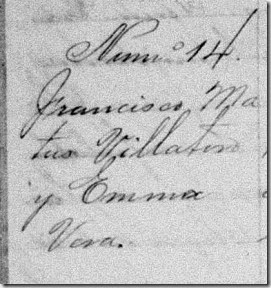 Num.º 14.
Francisco Ma
tus Villatoro
y Emma
Vera.